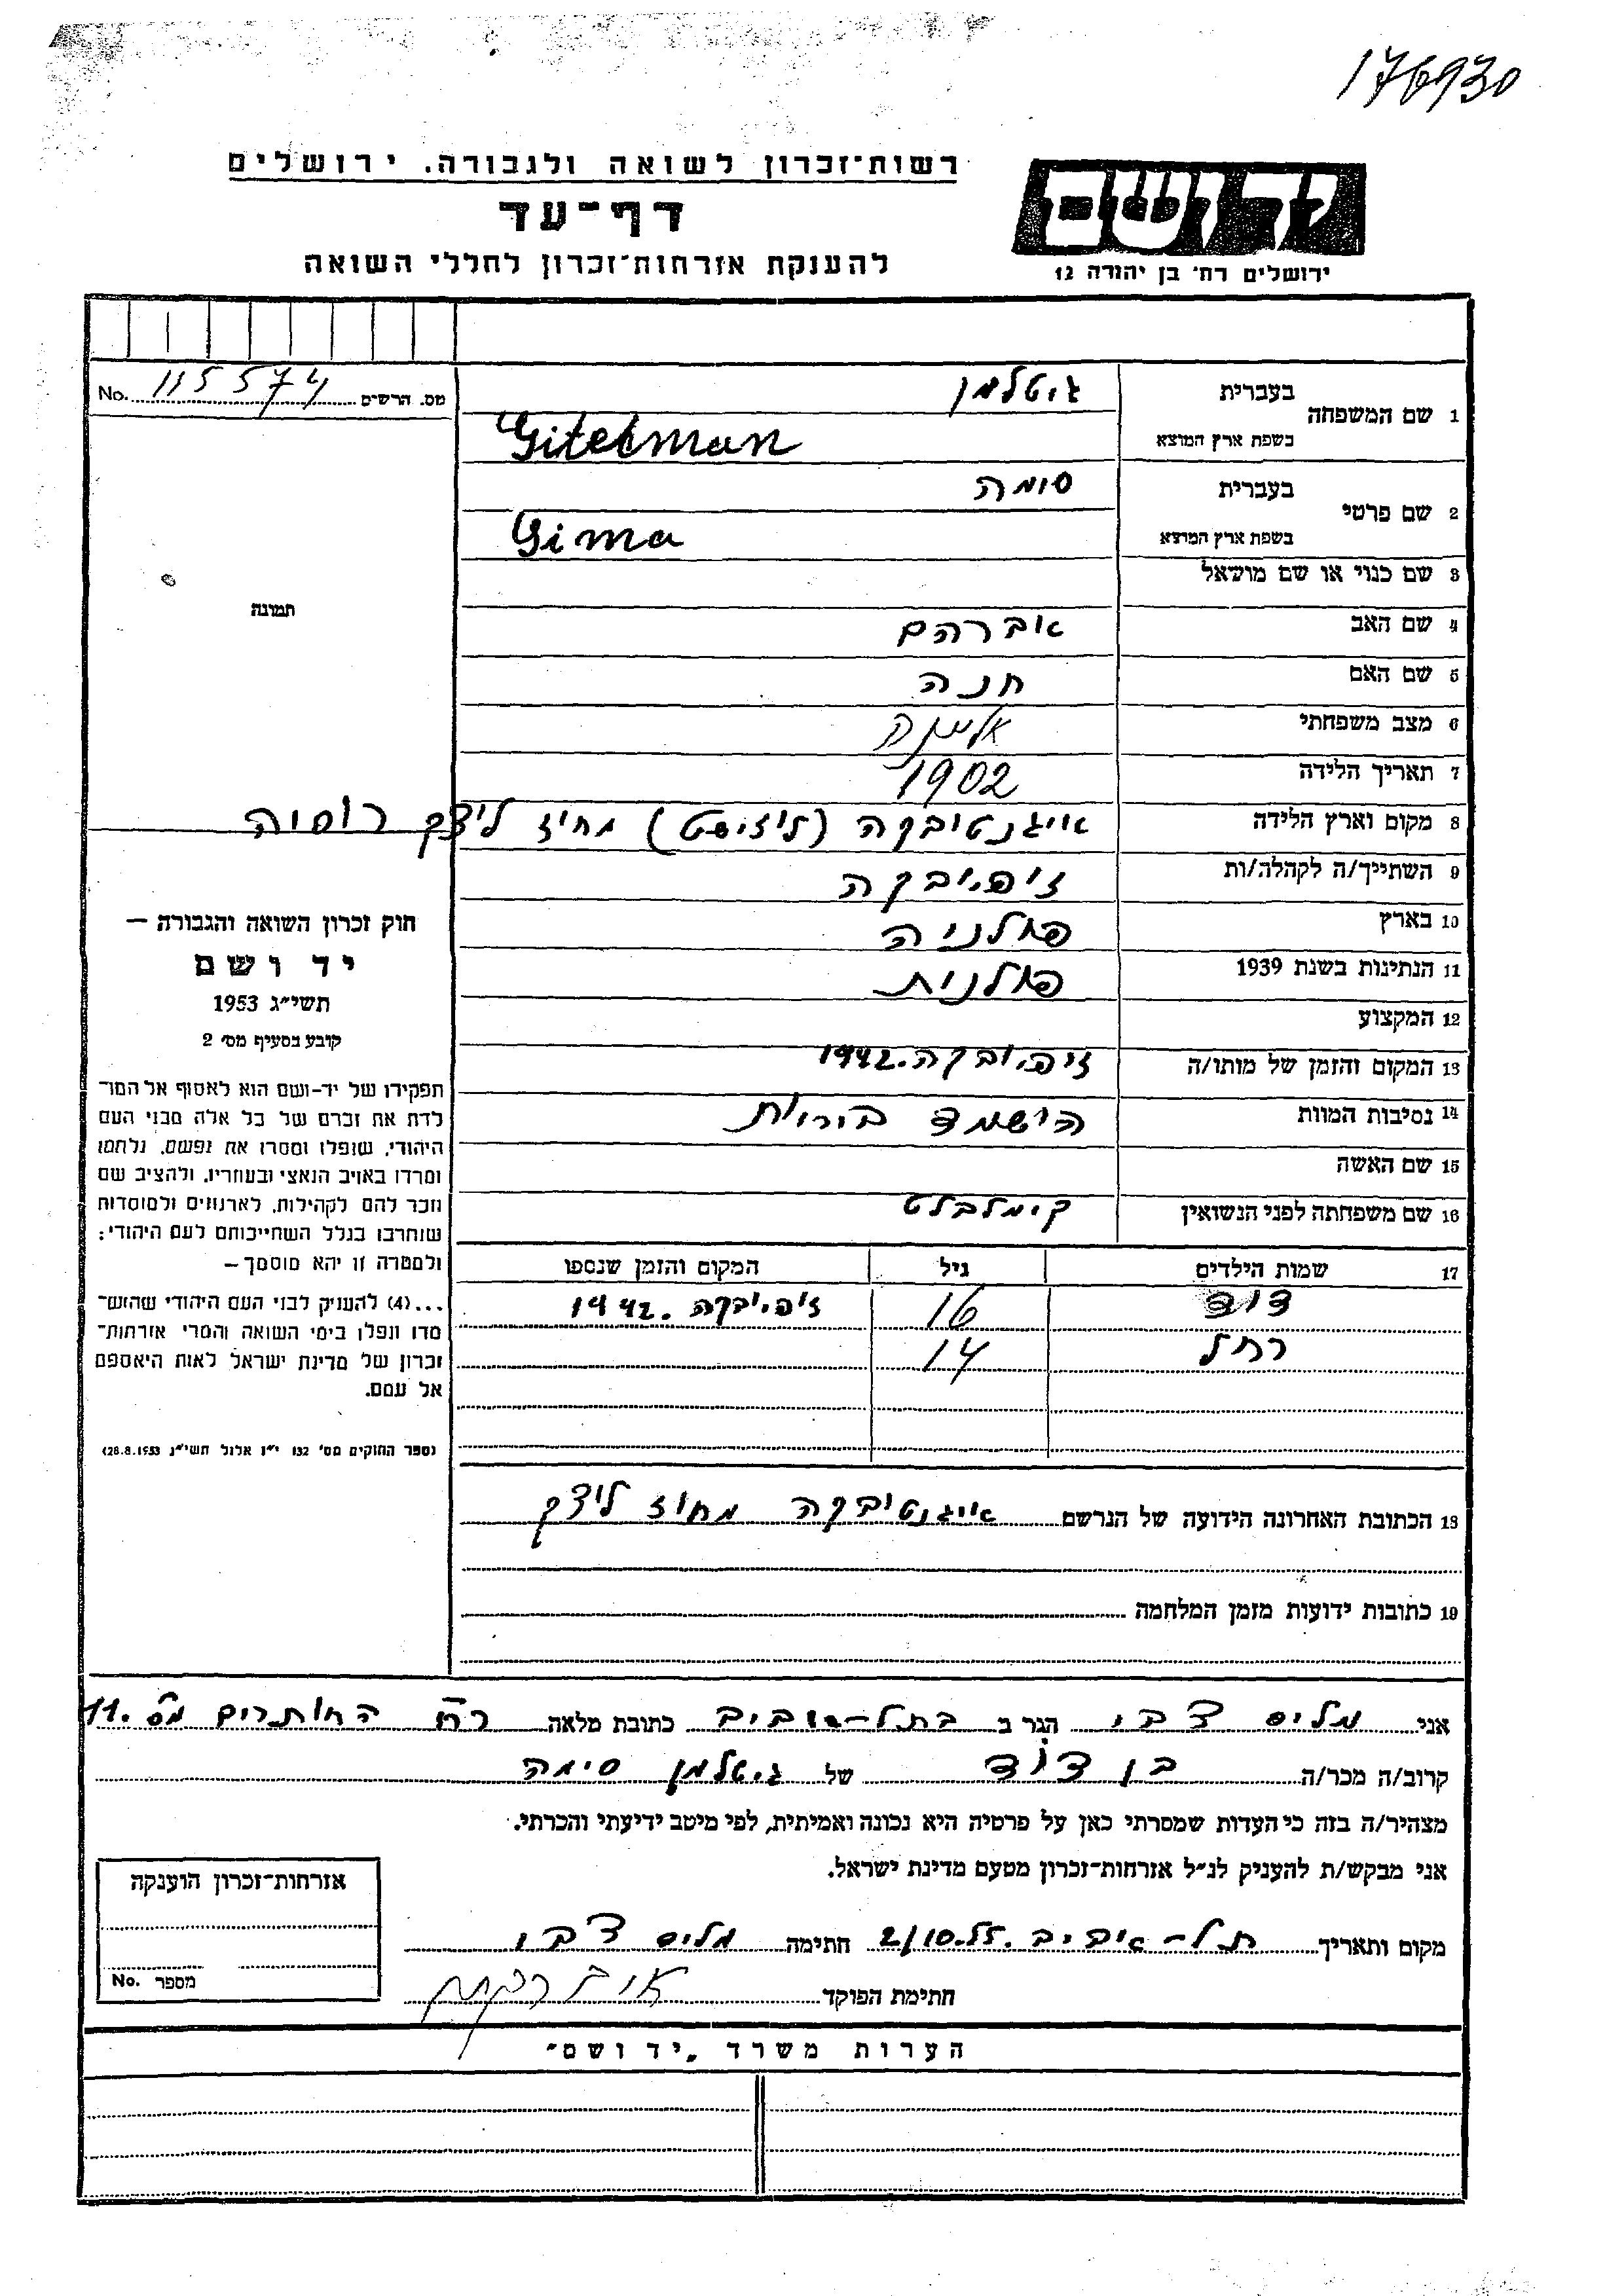 176930
רשות־זכרון לשואה ולגבורה. ירושלים
דף־עד
להענקת אזרחות־זכרון לחללי השואה
ירושלים רח׳ בן יהודה 12
No. 115574 מס. הרשים
1 שם המשפחה בעברית גיטלמן
בשפת ארץ המוצא Gitelman
2 שם פרטי בעברית סימה
בשפת ארץ המוצא Sima
3 שם כנוי או שם מושאל
4 שם האב אברהם
5 שם האם חנה
6 מצב משפחתי אלמנה
7 תאריך הלידה 1902
8 מקום וארץ הלידה איגנטיבקה מחוז ליצק רוסיה
9 השתייך/ה לקהלה/ות זופיובקה
10 בארץ פולניה
11 הנתינות בשנת 1939 פולנית
12 המקצוע
13 המקום והזמן של מותו/ה זופיובקה. 1942
14 נסיבות המוות הישמד ביריות
15 שם האשה
16 שם משפחתה לפני הנשואין קימלבלט
17 שמות הילדים גיל המקום והזמן שנספו
דוד 16 זופיובקה. 1942
רחל 14
18 הכתובת האחרונה הידועה של הנרשם איגנטיבקה מחוז ליצק
19 כתובות ידועות מזמן המלחמה
תמונה
חוק זכרון השואה והגבורה —
יד ושם
תשי״ג 1953
קובע בסעיף מס׳ 2
תפקידו של יד-ושם הוא לאסוף אל המו־
לדת את זכרם של כל אלה מבני העם
היהודי, שנפלו ומסרו את נפשם, נלחמו
ומרדו באויב הנאצי ובעוזריו, ולהציב שם
וזכר להם לקהילות, לארגונים ולמוסדות
שנחרבו בגלל השתייכותם לעם היהודי;
ולמטרה זו יהא מוסמך —
...(4) להעניק לבני העם היהודי שהוש־
מדו ונפלו בימי השואה והמרי אזרחות־
זכרון של מדינת ישראל לאות היאספם
אל עמם.
(ספר החוקים מס׳ 132 י״ז אלול תשי״ג 28.8.1953)
אני מליס צבי הגר ב בתל-אביב כתובת מלאה רח החותרים מס. 11
קרוב/ה מכר/ה בן דוד של גיטלמן סימה
מצהיר/ה בזה כי העדות שמסרתי כאן על פרטיה היא נכונה ואמיתית, לפי מיטב ידיעתי והכרתי.
אני מבקש/ת להעניק לנ״ל אזרחות-זכרון מטעם מדינת ישראל.
מקום ותאריך תל-אביב. 2/10.55 חתימה מליס צבי
חתימת הפוקד
אזרחות־זכרון הוענקה
No. מספר
הערות משרד „יד ושם״